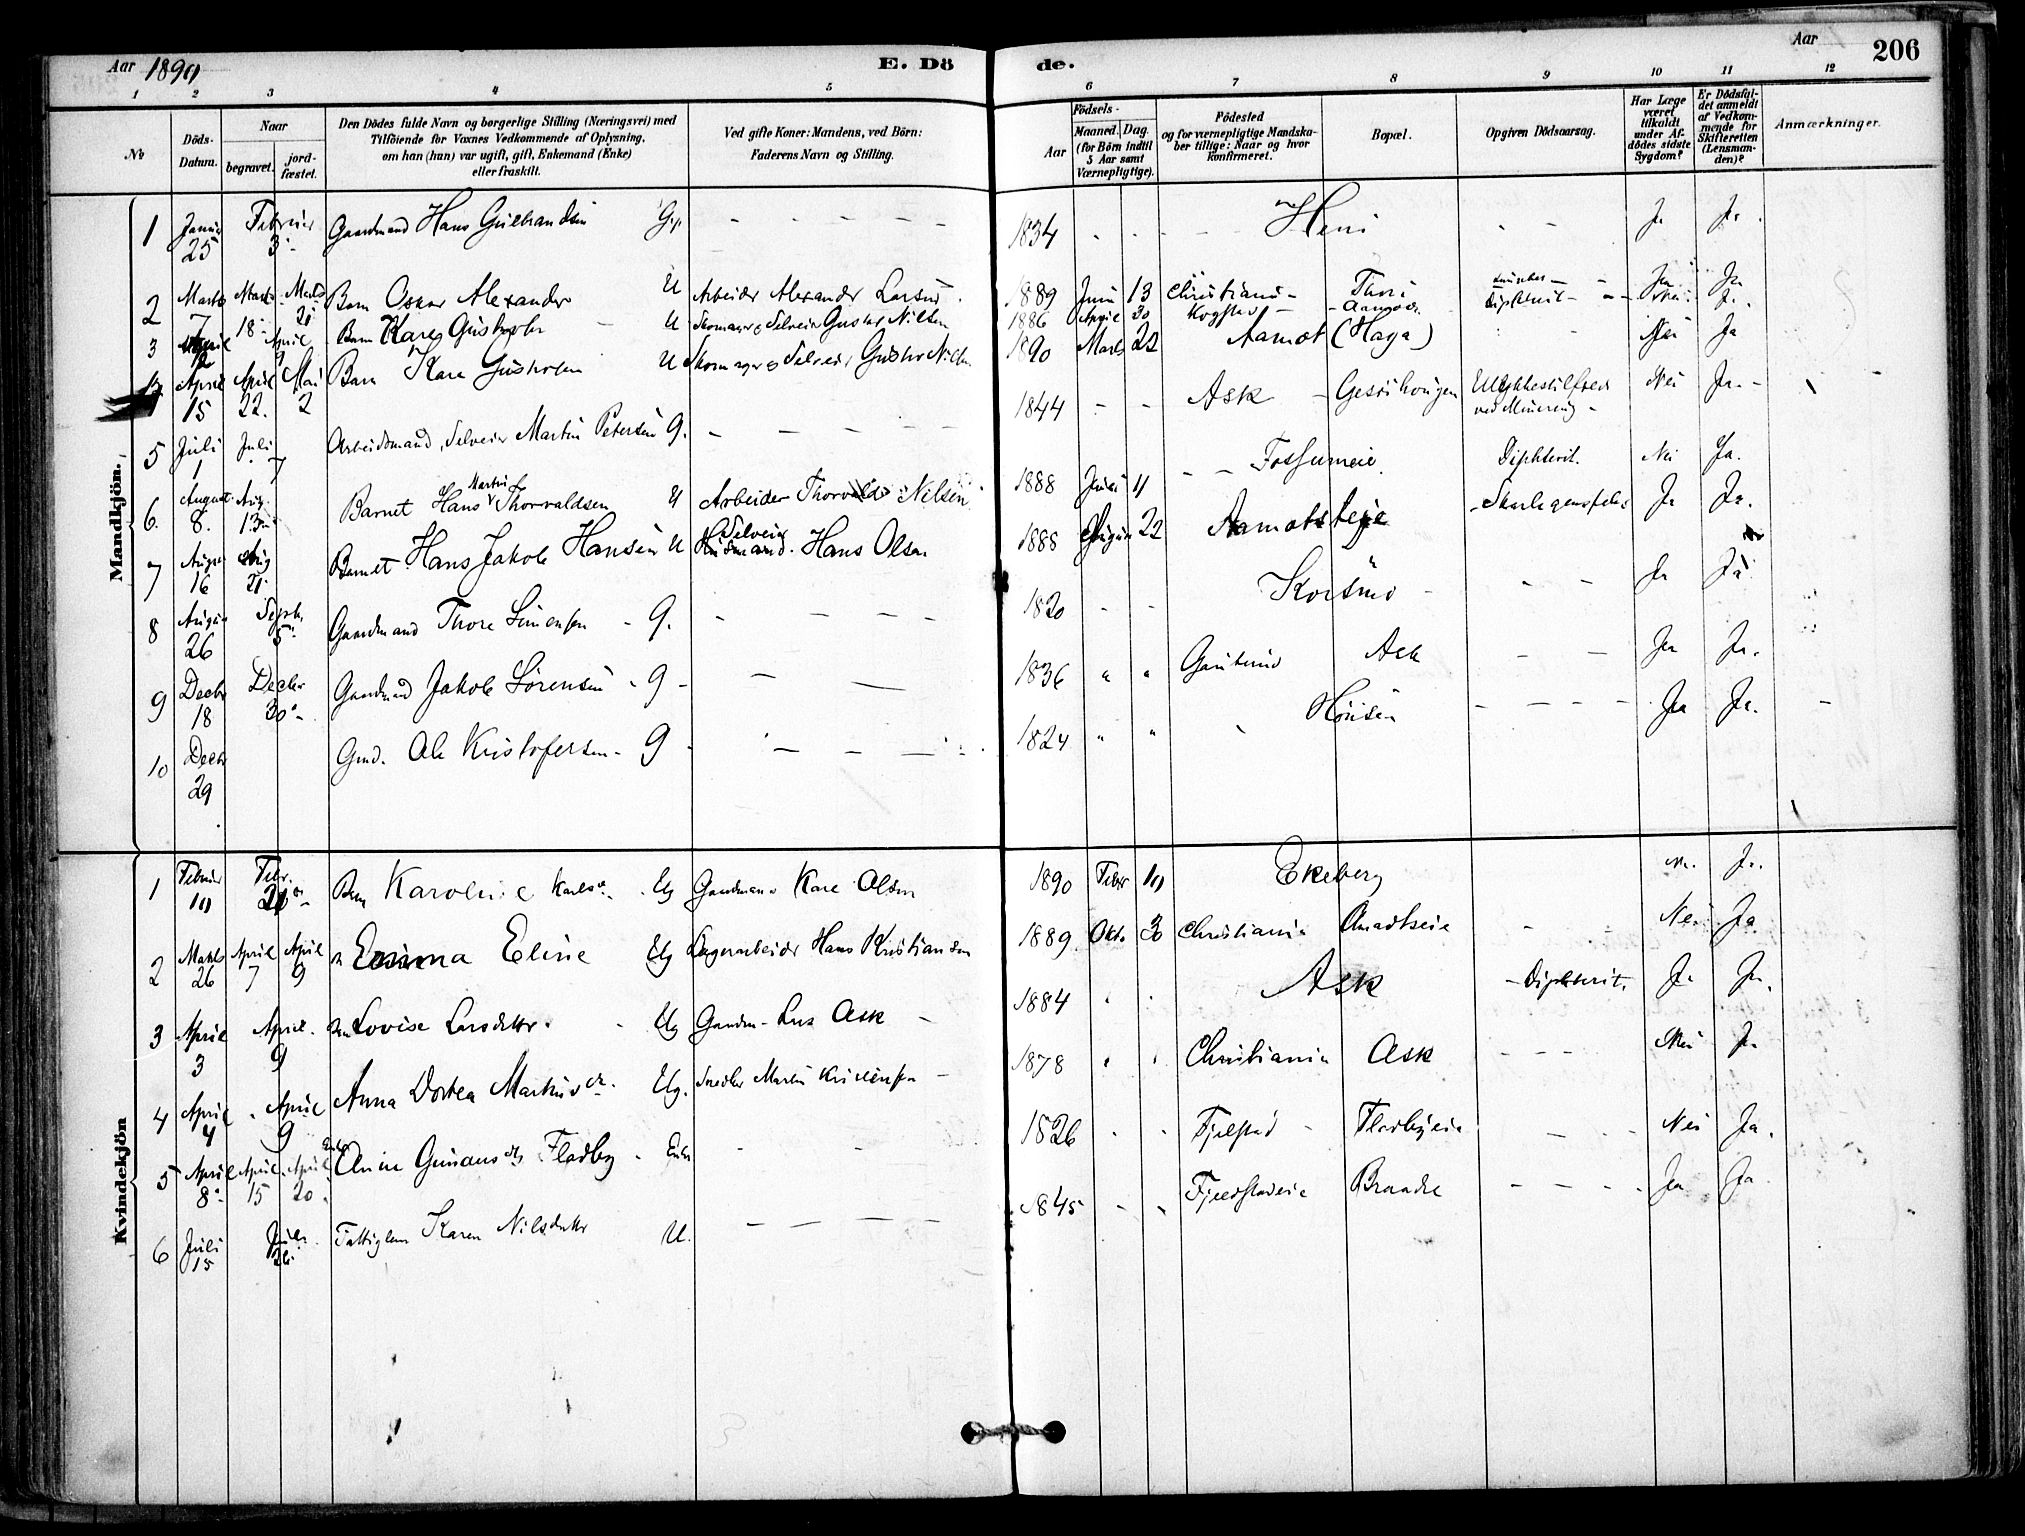 Aar 1890
E. Dö
de.
Aar
206
1 2 3 4 5 6 7 8 9 10 11 12
No
Döds-Datum.
Naar
begravet.
jord-fæstet.
Den Dödes fulde Navn og borgerlige Stilling (Næringsvei) med
Tilföiende for Voxnes Vedkommende af Oplysning,
om han (hun) var ugift, gift, Enkemand (Enke)
eller fraskilt.
Ved gifte Koner: Mandens, ved Börn:
Faderens Navn og Stilling.
Födsels-
Aar
Maaned. Dag.
(for Börn indtil
5 Aar samt
Værnepligtige).
Födested
og for værnepligtige Mandska-
ber tillige: Naar og hvor
konfirmeret.
Bopæl.
Opgiven Dödsaarsag.
Har Læge
været
tilkaldt
under Af-
dödes sidste
Sygdom?
Er Dödsfal-
det anmeldt
af Vedkom-
mende for
Skifteretten
(Lensman-
den)?
Anmærkninger.
Mandkjön.
1 Januar 25 Februar 3 Gaardmand Hans Gulbrandsen G. 1834 Heni Ja Ja
2 Marts 7 Marts 18 Marts 21 Barn Oskar Alexander U Arbeider Alexander Larsen 1889 Juni 13 Christiania Thori Ja Ja
3 April April 9 Barn Kare U Gustav Nilsen 1886 April 30 Kogstad Diphterit Nei Ja
4 April 15 April 22. Mai 2 Barn Kare U Skomager Selveier Gustav Nilsen 1890 Marts 22 Aamot (Haga) Nei Ja
5 Juli 1 Juli 7 Arbeidsmand, Selveier Martin Petersen G. 1844 Ask Ulykkestilfælde ved Minering Nei Ja
6. August 8. Aug. 13 Barnet Hans Martin Thorvaldsen U Arbeider Thorvald Nilsen 1888 Juni 11 Fossumeie Diphterit. Nei Ja.
7 August 16 Aug 21 Barnet Hans Jakob Hansen U Selveier Husmand. Hans Olsen 1888 August 22 Aamotseje Skarlagensfeber Ja Ja.
8 August 26 Septb. 5 Gaardmand Thore Simensen G. 1820 Korsmo Ja Ja
9 Decbr 18 Decbr 30 Gaardmand Jakob Sörensen G 1836 Ask Ja Ja.
10 Decbr 29 Gmd. Ole Kristofersen G 1824 Hönsen Ja Ja.
Kvindekjön
1 Februar 10 Febr. 20 Barn Karoline Karlsd. Ug Gaardmand Karl Olsen 1890 Febr 10 Ekeberg Nei Ja.
2 Marts 26 April 7 April 9 Emma Eline Ug Lagerarbeider Hans Kristiansen 1889 Okt. 30 Christiania Nei Ja
3 April 3 April 9 Barn Lovise Larsdatter Ug Gaardm. Lars Ask 1884 Ask Diphterit. Ja Ja.
4 April 4 April 9 Anna Dortea Markusd. Ug. Snedker Martin Kristensen 1878 Christiania Ask Nei Ja
5 April 8 April 15 April 20 Enke Fladby Enke 1826 Fjelstad Fladbyeie Nei Ja.
6 Juli 15 Juli Fattiglem Karen Nilsdatter U. 1845 Fjeldstadeie Braadte Ja Ja